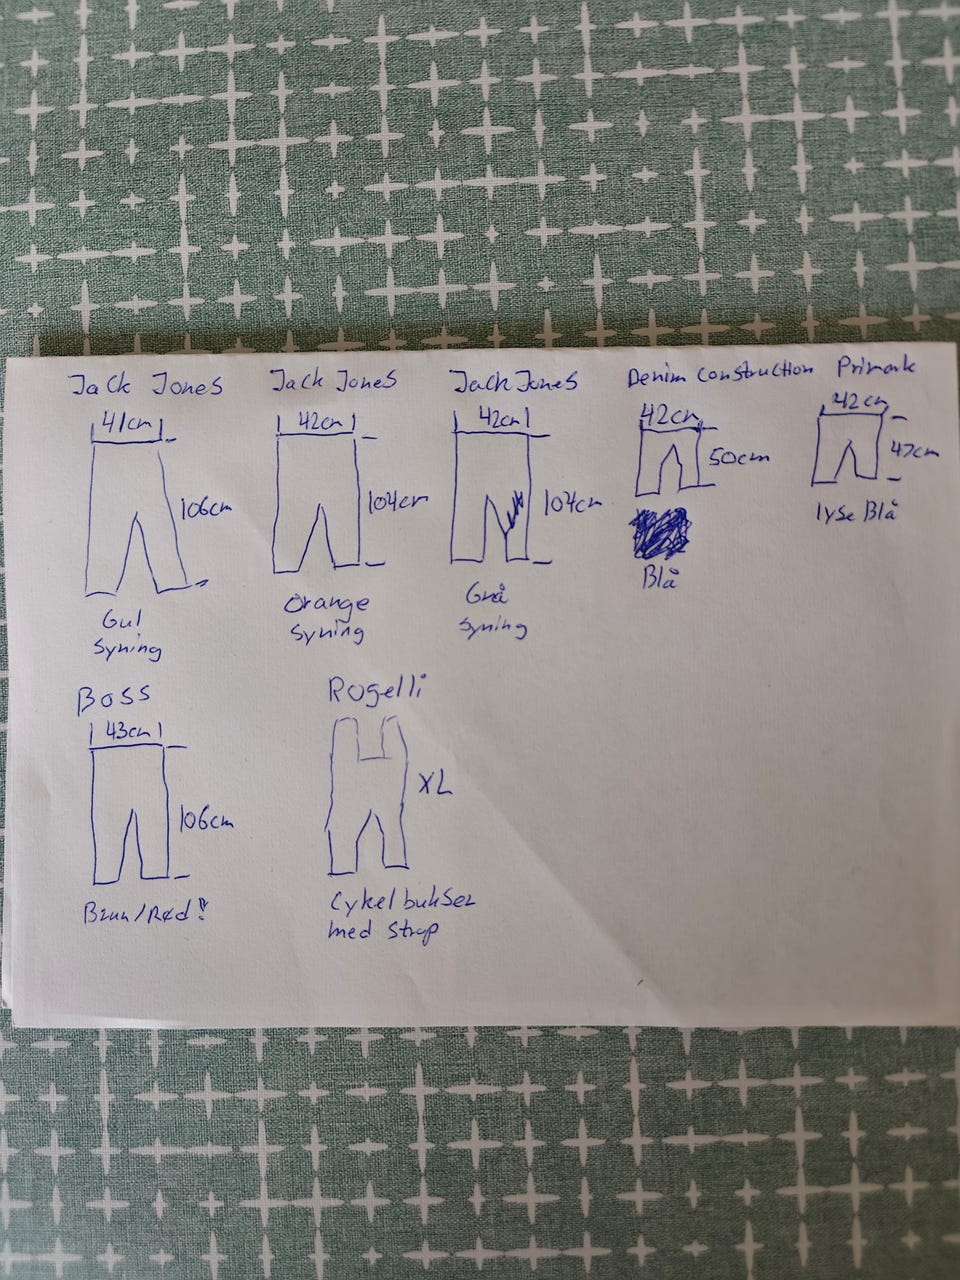 Jack Jones
41cm
106cm
Gul
Syning
Jack Jones
42cm
104cm
Orange
Syning
Jack Jones
42cm
104cm
Grå
Syning
Denim Construction
42cm
50cm
Blå
Primark
42cm
47cm
lyse Blå
Boss
43cm
106cm
Brun/Rød!
Rogelli
XL
Cykelbukser
med Strop